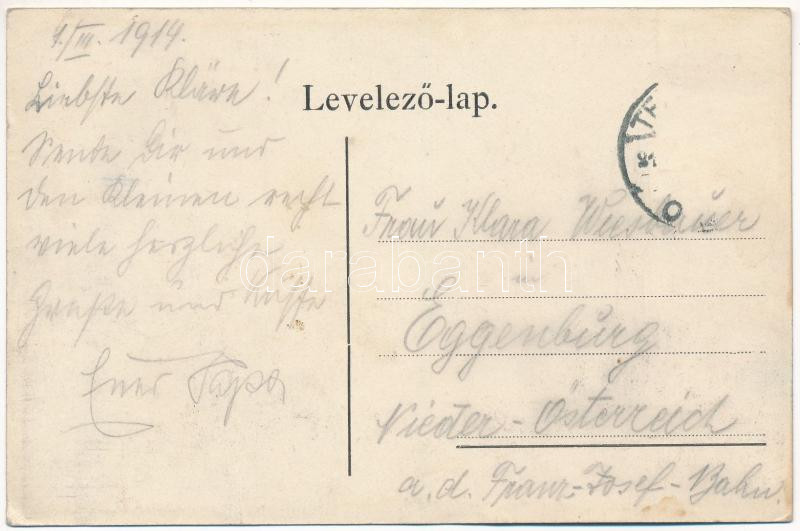 1./III. 1914.
Liebste Kläre!
Sende Dir und
den Kleinen recht
viele herzliche
Grüße und Küsse
Euer Papa
Levelező-lap.
Frau Klara Wiesbauer
in
Eggenburg
Nieder-Österreich
a. d. Franz-Josef-Bahn.
darabanth